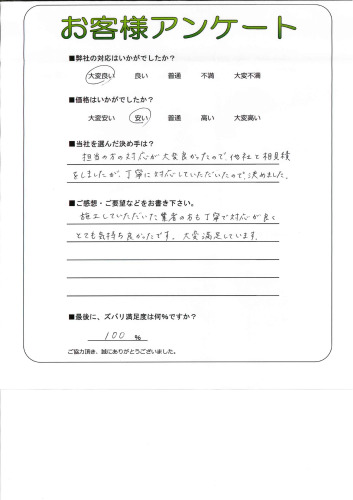 お客様アンケート
■弊社の対応はいかがでしたか？
大変良い 良い 普通 不満 大変不満
■価格はいかがでしたか？
大変安い 安い 普通 高い 大変高い
■当社を選んだ決め手は？
担当の方の対応が大変良かったので、他社と相見積
をしましたが、丁寧に対応していただいたので、決めました。
■ご感想・ご要望などをお書き下さい。
施工していただいた業者の方も丁寧で対応が良く
とても気持ち良かったです。大変満足しています。
■最後に、ズバリ満足度は何%ですか？
100 %
ご協力頂き、誠にありがとうございました。